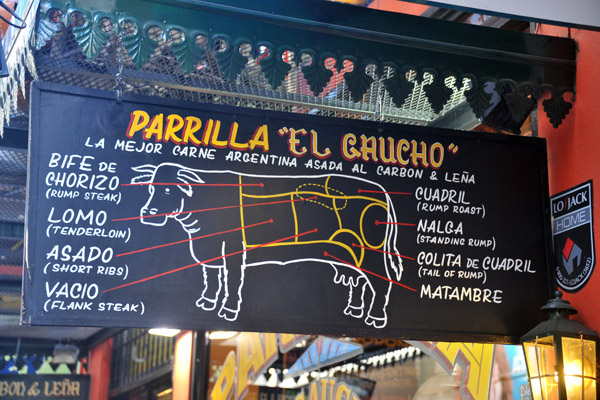 PARRILLA "EL GAUCHO"
LA MEJOR CARNE ARGENTINA ASADA AL CARBON & LEÑA
BIFE DE
CHORIZO
(RUMP STEAK)
LOMO
(TENDERLOIN)
ASADO
(SHORT RIBS)
VACIO
(FLANK STEAK)
CUADRIL
(RUMP ROAST)
NALGA
(STANDING RUMP)
COLITA DE CUADRIL
(TAIL OF RUMP)
MATAMBRE
LO JACK
HOME
BON & LEÑA